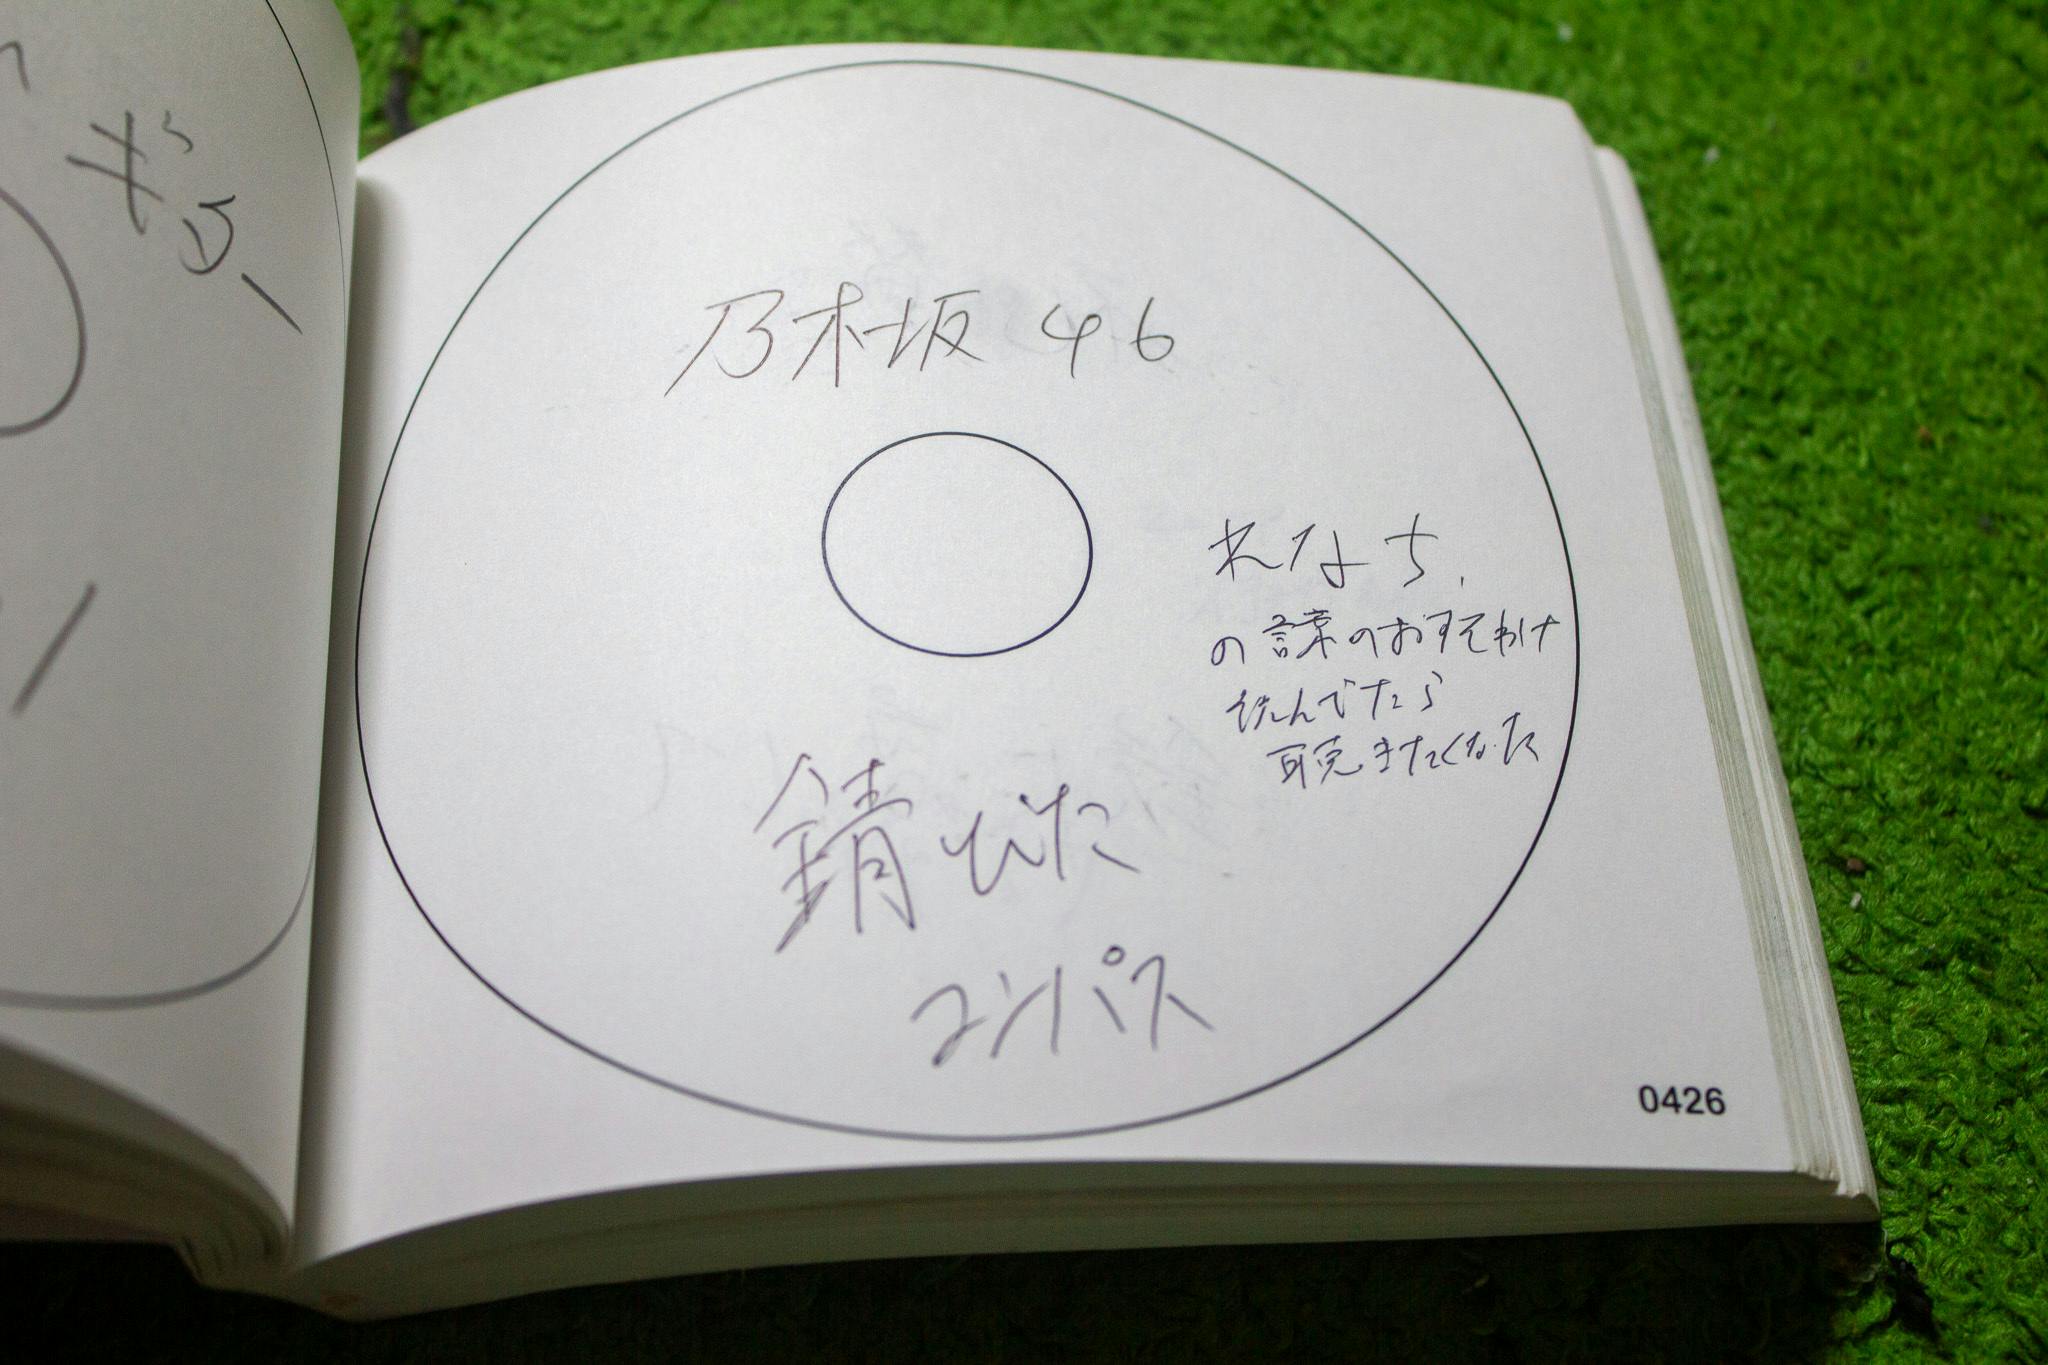 ギター
乃木坂46
れなち
の言葉のおすそわけ
読んでたら
聴きたくなった
錆びた
コンパス
0426